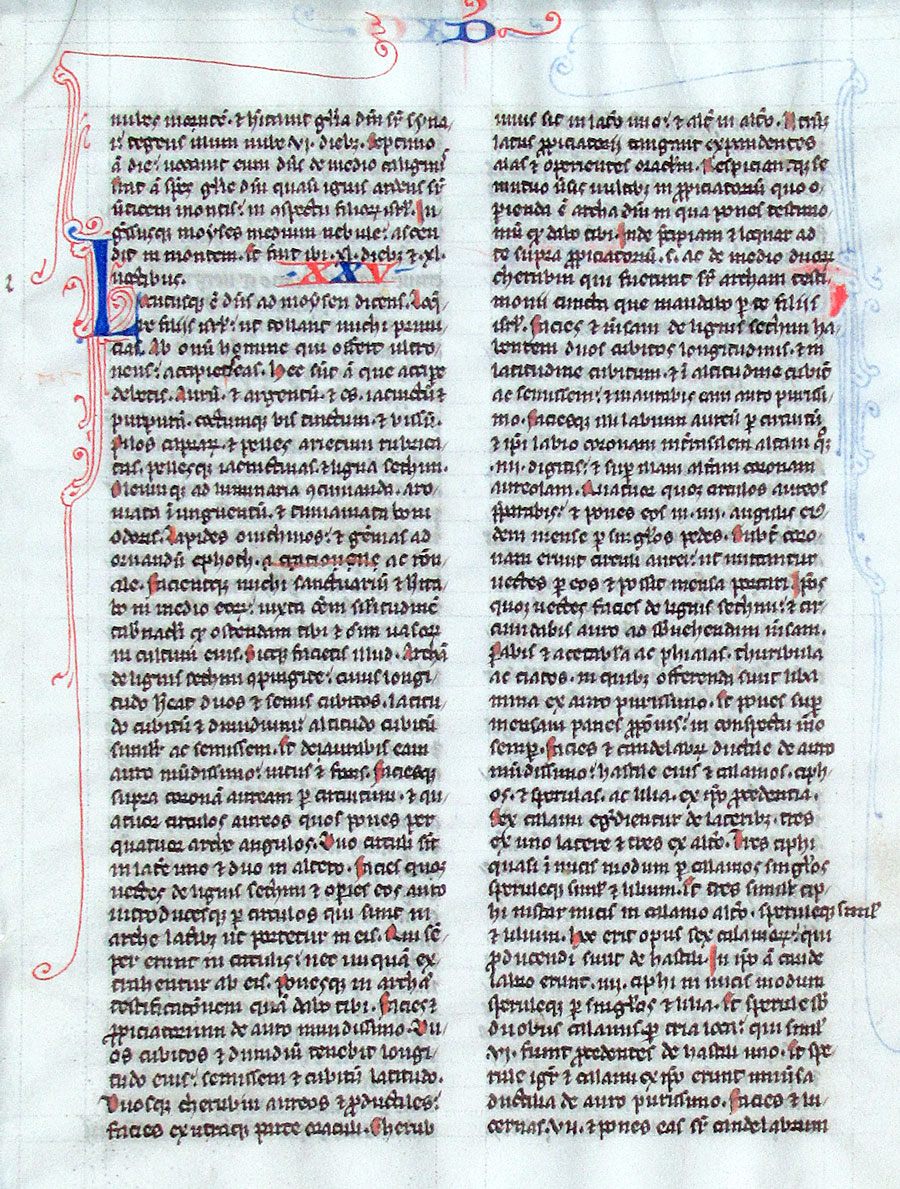 D
nubes montē. ⁊ hītauit gl̄ia dn̄i sr̄ syna
i: tegens illum nube .vi. dieb3. Septimo
ā die: uocauit eum dn̄s de medio caliginis
Erat ā spēs gl̄ie dn̄i quasi ignis ardens sr̄
ūticem montis: in aspectu filioꝝ isrl̄. In
gr̄ssusq3 moyses medium nebule: ascen
dit in montem. Et fuit ibi .xl. dieb3 ⁊ .xl.
noctibus. XXV
Locutusq3 ē dn̄s ad moysen dicens. Loq̄
re filiis isrl̄: ut tollant michi primi
cias. Ab om̄i homine qui offert ultro
neus: accipietis eas. Hec sūt ā que accipe
debetis. Aurū. ⁊ argentū. ⁊ es. iacinctū ⁊
purpurā. coccumq3 bis tinctum. ⁊ bissū.
Pilos capraꝝ. ⁊ pelles arietum rubrica
tas. pellesq3 iacinctinas. ⁊ ligna sethim.
Oleumq3 ad luminaria ꝯcinnanda. aro
mata ī unguentū. ⁊ timiamata boni
odoris. Lapides onichinos: ⁊ gēmas ad
ornandū ephoth. ac rationale.
ale. Facientq3 michi sanctuariū ⁊ hīta
bo in medio eoꝝ: iuxta om̄em similitudinē
tab̄naculi qd̄ ostendam tibi ⁊ om̄iū uasoꝝ
in cultum eius. Sicq3 facietis illud. Archā
de lignis sethim ꝯpingite: cuius longi
tudo hēat duos ⁊ semis cubitos. latitu
do cubitū ⁊ dimidium: altitudo cubitū
similr̄ ac semissem. Et deaurabis eam
auro mūdissimo: intus ⁊ foris. Faciesq3
supra coronā auream ꝑ circuitum. ⁊ qu
atuor circulos aureos quos pones per
quatuor arche angulos. Duo circuli sīt
in latē uno ⁊ duo in altero. Facies quoq3
uectes de lignis sethim ⁊ oꝑies eos auro
introducesq3 ꝑ circulos qui sunt in
arche latib3 ut portetur in eis. Qui sē
per erunt in circulis: nec unquā ex
trahentur ab eis. Ponesq3 in archā
testificationem quā dabo tibi. Facies ⁊
ꝓpiciatorium de auro mundissimo. Du
os cubitos ⁊ dimidiū tenebit longi
tudo eius: semissem ⁊ cubitū latitudo.
Duosq3 cherubin aureos ⁊ ꝓductiles:
facies ex utraq3 parte oraculi. Cherub
unus sit in latē uno: ⁊ alt̄ in alt̄o. Utrūq3
latus ꝓpiciatorii tangant expandentes
alas ⁊ operientes oraclm̄. Respiciantq3 se
mutuo ūsis uultib3 in ꝓpiciatoriū quo o
ꝑienda ē archa dn̄i in qua pones testimo
niū qd̄ dabo tibi. Inde p̄cipiam ⁊ loquar ad
te supra ꝓpiciatoriū. s. ac de medio duoꝝ
cherubin qui fuerunt sr̄ archam testi
monii cuncta que mandabo ꝑ te filiis
isrl̄. Facies ⁊ mēsam de lignis sethim ha
bentem duos cubitos longitudinis. ⁊ in
latitudine cubitum. ⁊ ī altitudine cubitū
ac semissem: ⁊ inaurabis eam auro purissi
mo. Faciesq3 illi labium aureū ꝑ circuitū
⁊ ip̄i labio coronam int̄rasilem altam q̄tuor
.iiii. digitis: ⁊ sup illam alt̄am coronam
aureolam. Quatuor quoq3 circulos aureos
p̄parabis: ⁊ pones eos in .iiii. angulis eiꝰ
dem mense ꝑ singl̄os pedes. Subt̄ coro
nam erunt circuli aurei: ut mittantur
uectes ꝑ eos ⁊ possit mensa portari. Ip̄os
quoq3 uectes facies de lignis sethim: ⁊ cir
cundabis auro ad subuehendum mēsam.
Parabis ⁊ acetabl̄a ac phialas. thuribula
ac ciatos. in quib3 offerenda sunt liba
mina ex auro purissimo. Et pones sup
mensam panes ꝓpōnis: in conspectu m̄o
semp. Facies ⁊ candelabrū ductile de auro
mūdissimo: hastile eius ⁊ calamos. ciph
os. ⁊ sperulas. ac lilia. ex ip̄o ꝓcedentia.
Sex calami egr̄dientur de laterib3. tres
ex uno latere ⁊ tres ex alt̄o. Tres ciphi
quasi ī nucis modum ꝑ calamos singl̄os
sperulaq3 simul ⁊ lilium. Et tres similr̄ cip
hi instar nucis in calamo alt̄o. sperulaq3 simul
⁊ lilium. hoc erit opus sex calamoꝝ: qui
ꝓducendi sunt de hastili. In ip̄o ā cande
labro erunt .iiii. ciphi in nucis modum
speruleq3 ꝑ singl̄os ⁊ lilia. Et sperule sb̄
duobus calamis ꝑ tria loca: qui simul
.vi. fiunt ꝓcedentes de hastili uno. Et spe
rule igr̄ ⁊ calami ex ip̄o erunt uniūsa
ductilia de auro purissimo. Facies ⁊ lu
cernas .vii. ⁊ pones eas sr̄ candelabrum